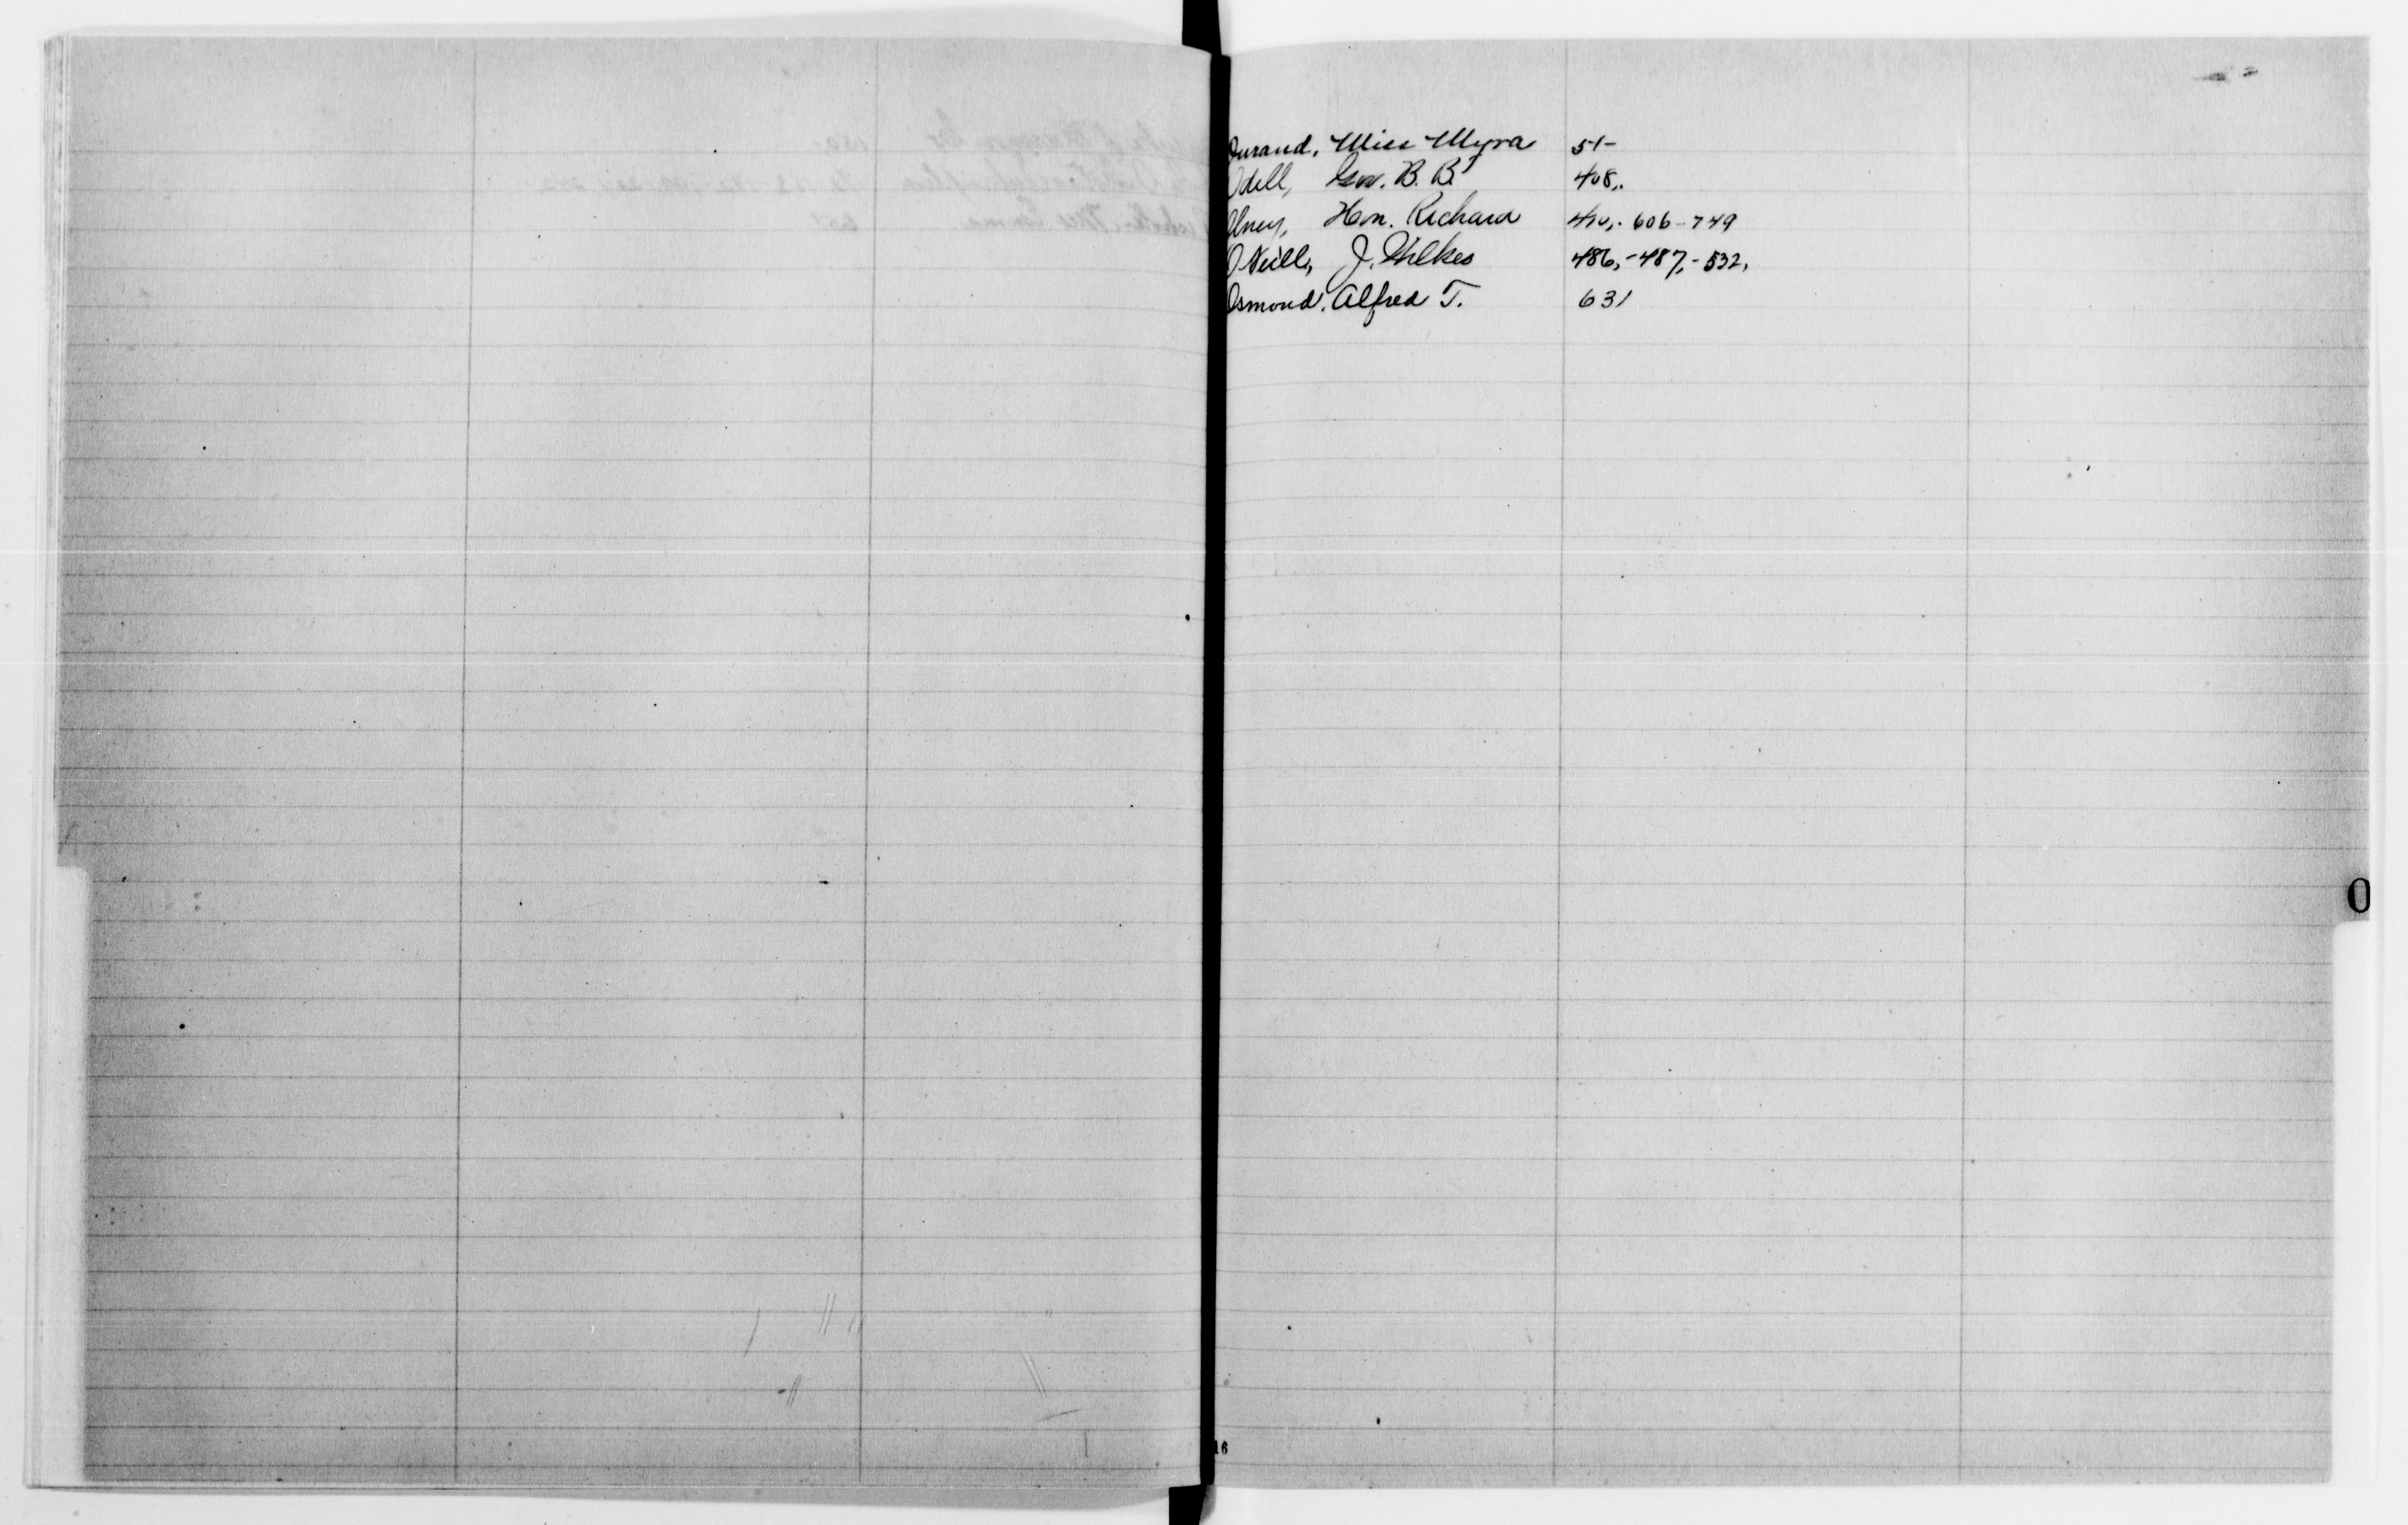 Durand, Miss Myra 51-
Odell, Gov. B. B. 408,.
Olney, Hon. Richard 410,. 606-749
O'Neill, J. Wilkes 486,-487,-532,
Osmond, Alfred T. 631
O
16